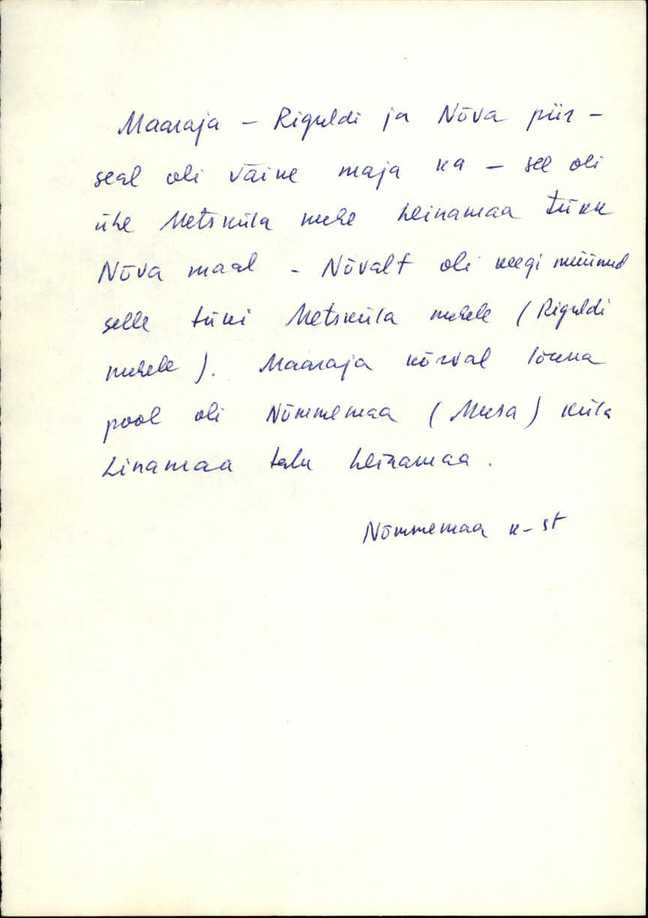 Maaraja – Riguldi ja Nõva piir –
seal oli väike maja ka – see oli
ühe Metsküla mehe heinamaa tükk
Nõva maal – Nõvalt oli keegi müünud
selle tüki Metsküla mehele (Riguldi
mehele). Maaraja kõrval lõuna
pool oli Nõmmemaa (Musa) küla
Linamaa talu heinamaa.
Nõmmemaa k-st